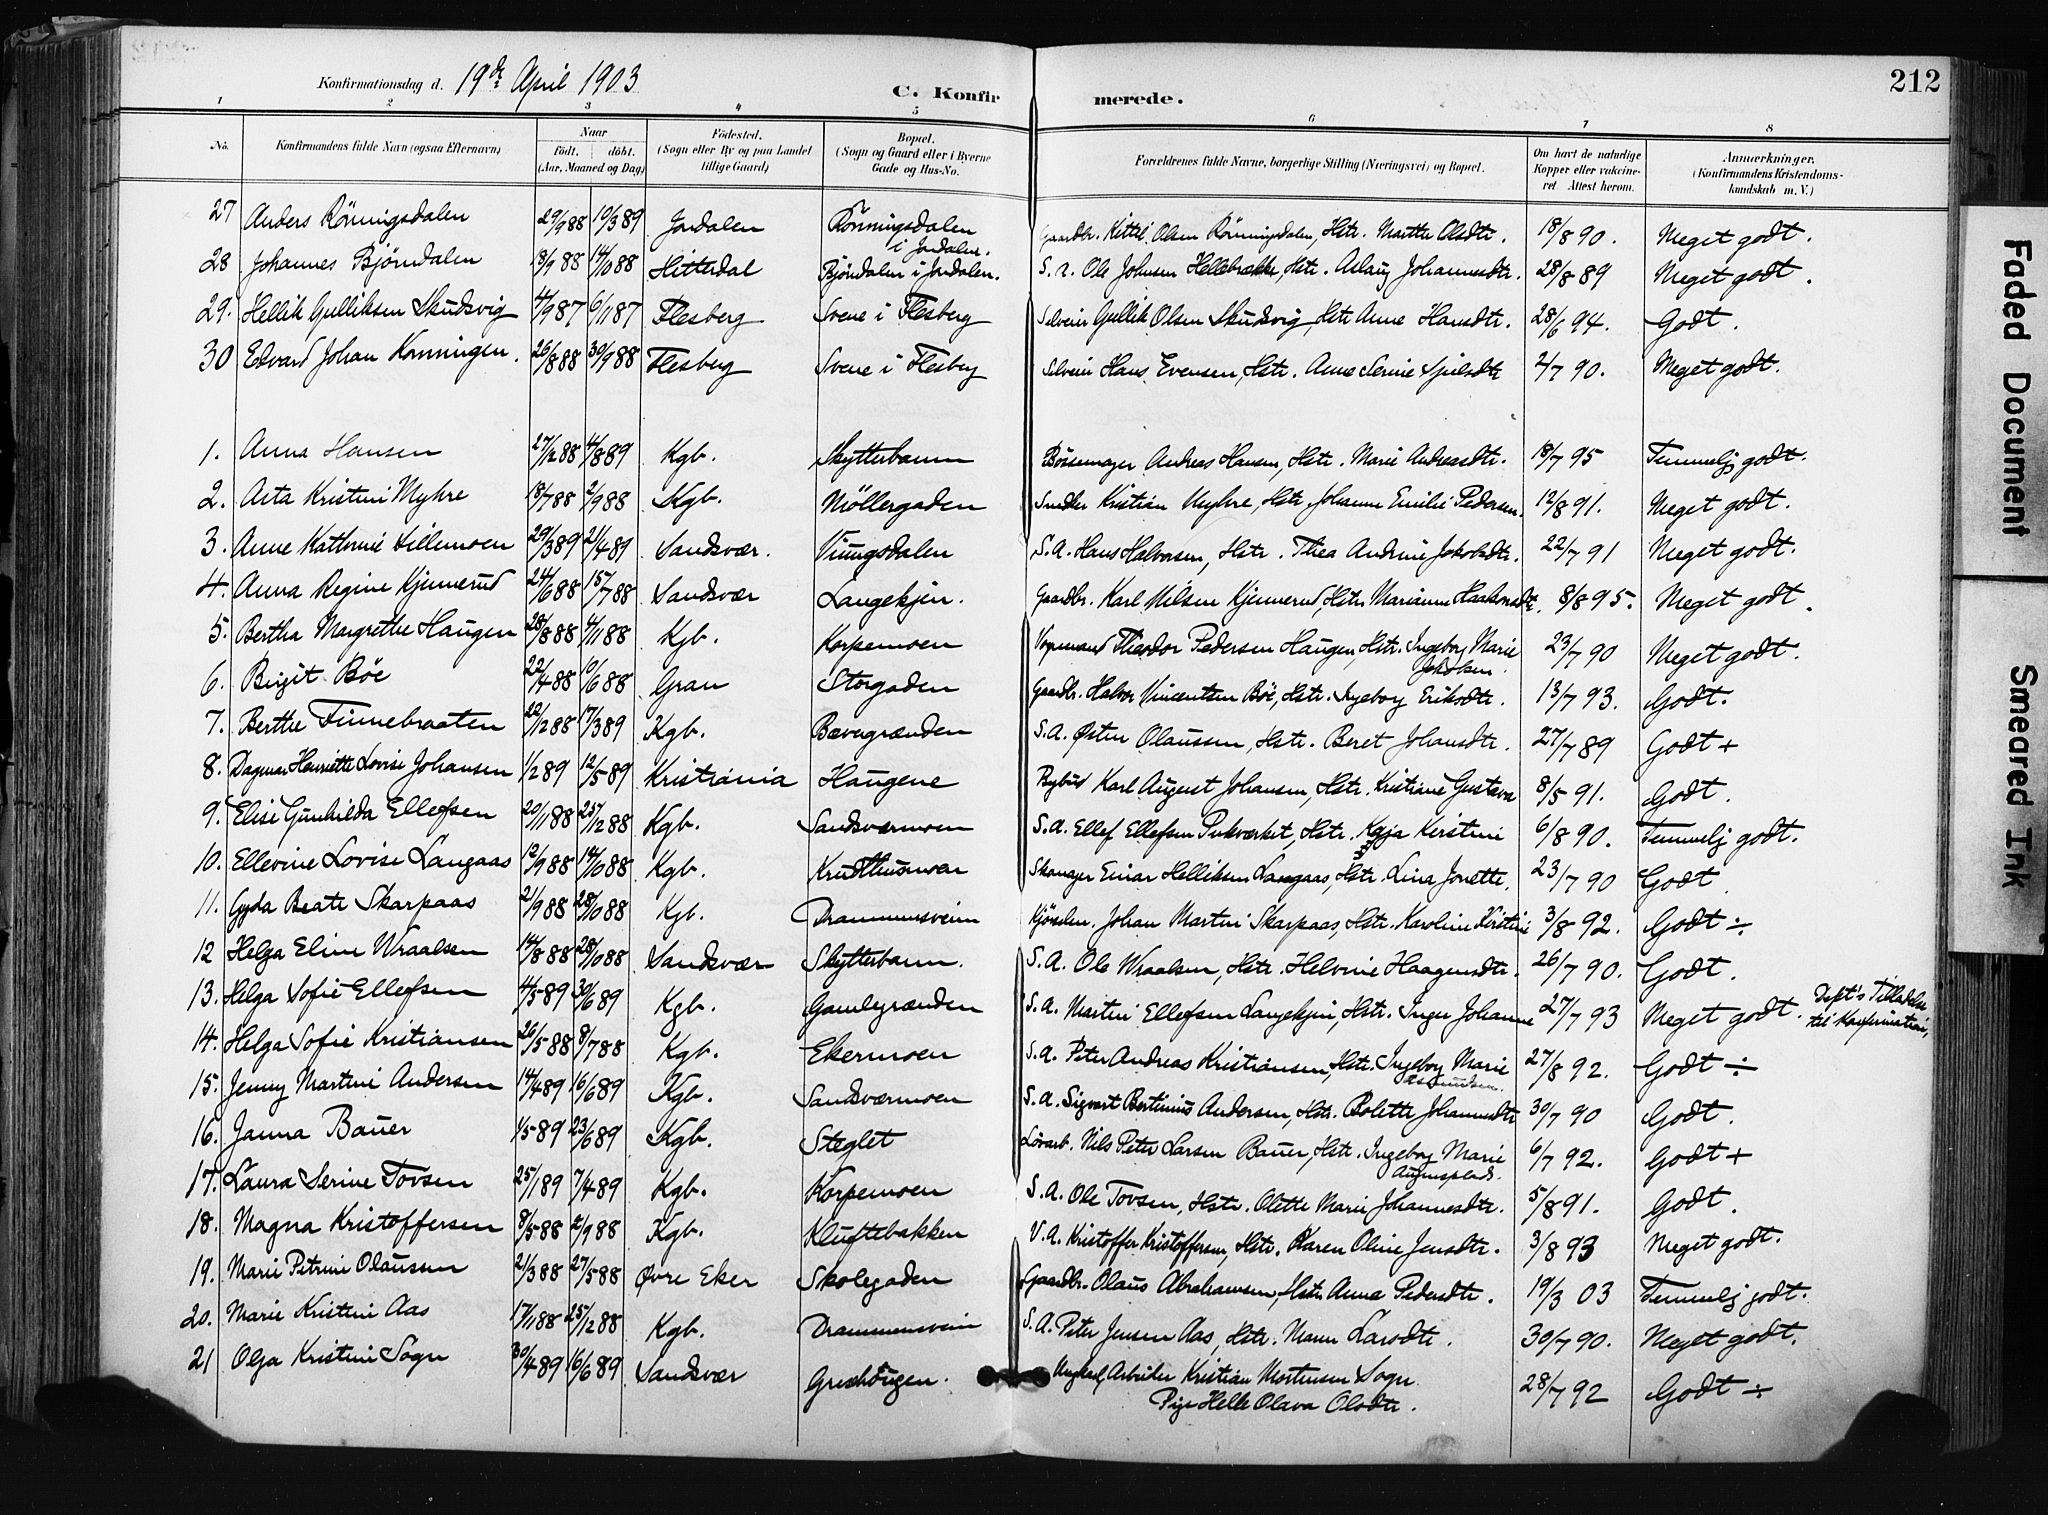 Konfirmationsdag d. 19de April 1903
C. Konfirmerede.
212
1 2 3 4 5 6 7 8
No. Konfirmandens fulde Navn (ogsaa Efternavn) Naar født, døbt. (Aar, Maaned og Dag) Fødested. (Sogn eller By og paa Landet tillige Gaard) Bopæl. (Sogn og Gaard eller i Byerne Gade og Hus-No. Forældrenes fulde Navne, borgerlige Stilling (Næringsvei) og Bopæl. Om havt de naturlige Kopper eller vaccineret Attest herom. Anmærkninger. (Konfirmandens Kristendomskundskab m. V.)
27 Anders Rönningsdalen 29/9 88 10/3 89 Jondalen Rönningsdalen i Jondalen. Gaardbr. Kittil Olsen Rönningsdalen, Hstr. Marthe Olsdtr. 18/8 90. Meget godt.
28 Johannes Björndalen 18/9 88 14/10 88 Hitterdal Björndalen i Jondalen. S. A. Ole Johnsen, Hstr. Aslaug Johannesdtr. 28/8 89 Meget godt.
29. Hellik Gulliksen Skudsvig 4/9 87 6/11 87 Flesberg Svene i Flesberg Selveier Gullik Olsen Skudsvig Hstr Anne Hansdtr. 28/6 94. Godt.
30 Edvard Johan Kornningen. 26/8 88 30/9 88 Flesberg Svene i Flesberg Selveier Hans Evensen, Hstr. Anne Serine 2/7 90. Meget godt.
1. Anna Hansen 27/12 88 4/8 89 Kgb. Skytterbanen Bössemager Andreas Hansen, Hstr. Marie Andreasdtr. 18/7 95 Temmelig godt.
2. Asta Kristine Myhre 18/7 88 2/9 88 Kgb. Möllergaden Snedker Kristian Myhre, Hstr. Johanne Emilie Pedersen. 12/8 91. Meget godt.
3. Anne Kathrine Lillemoen 29/3 89 21/4 89 Sandsvær. Vinngsdalen S. A. Hans Halvorsen, Hstr. Thea Andrine Jakobsdtr. 22/7 91 Meget godt.
4. Anna Regine Kjennerud 24/6 88 15/7 88 Sandsvær Langekjen. Gaardbr. Karl Nilsen Kjennerud, Hstr. Marianne Haakonsdtr. 8/8 95. Meget godt.
5. Bertha Margrethe Haugen 28/8 88 4/11 88 Kgb. Korpemoen Vognmand Theodor Pedersen Haugen, Hstr. Ingeborg Marie Jakobsen. 23/7 90 Meget godt.
6. Birgit Böe 22/4 88 10/6 88 Gran Storgaden Gaardbr. Halvor Vincentsen Böe, Hstr. Ingeborg Eriksdtr. 13/7 93. Godt.
7. Berthe Finnebraaten 22/12 88 17/3 89 Kgb. Bævergrænden S. A. Østen Olaussen, Hstr. Beret Johansdtr. 27/7 89 Godt +
8. Dagmar Henriette Lovise Johansen 1/2 89 12/5 89 Kristiania Haugene Bybud Karl August Johansen, Hstr. Kristiane Gustava 8/5 91. Godt.
9. Elise Gunhilda Ellefsen 20/11 88 25/12 88 Kgb. Sandsværmoen S. A. Ellef Ellefsen Pukverket, Hstr. Kaja Kerstine 6/8 90. Temmelig godt.
10. Ellevine Lovise Langaas 12/9 88 14/10 88 Kgb. Krudthusmoen Skomager Einar Helliksen Langaas, Hstr. Lina Jonette. 23/7 90 Godt
11. Gyda Beate Skarpaas 21/9 88 28/10 88 Kgb. Drammensveien Johan Martin Skarpaas, Hstr. Karoline Kirstine 3/8 92. Godt ÷
12 Helga Eline Wraalsen 14/8 88 28/10 88 Sandsvær Skytterbanen. S. A. Ole Wraalsen, Hstr. Helvine Haagensdtr. 26/7 90. Godt.
13. Helga Sofie Ellefsen 4/5 89 30/6 89 Kgb. Gamlegrænden S. A. Martin Ellefsen Langekjen, Hstr. Inger Johanne 27/7 93 Meget godt. Dept's Tilladelse til Konfirmation.
14. Helga Sofie Kristiansen 26/5 88 8/7 88 Kgb. Ekermoen S. A. Peter Andreas Kristiansen, Hstr. Ingeborg Marie Asmundsen. 27/8 92. Godt ÷
15. Jenny Martine Andersen 14/4 89 16/6 89 Kgb. Sandsværmoen S. A. Sigvart Bertinius Andersen, Hstr. Bolette Johannesdtr 30/7 90 Godt.
16. Janna Bauer 1/5 89 23/6 89 Kgb. Steglet Nils Peter Larsen Bauer, Hstr. Ingeborg Marie 6/7 92. Godt +
17. Laura Serine Tovsen 25/1 89 7/4 89 Kgb. Korpemoen S. A. Ole Tovsen, Hstr. Olette Marie Johannesdtr. 5/8 91. Godt.
18. Magna Kristoffersen 8/5 88 2/9 88 Kgb. Kluftebakken V. A. Kristoffer Kristoffersen, Hstr. Karen Oline Jensdtr. 3/8 93 Meget godt.
19. Marie Petrine Olaussen 21/3 88 27/5 88 Øvre Eker Skolegaden Gaardbr. Olaus Abrahamsen, Hstr. Anna Pedersdtr. 19/3 03 Temmelig godt.
20. Marie Kristine Aas 17/11 88 25/12 88 Kgb. Drammensveien S. A. Peter Jensen Aas, Hstr. Maren Larsdtr. 30/7 90. Meget godt.
21 Olga Kristine Sogn 30/4 89 16/6 89 Sandsvær Ungkarl Arbeider Kristian Mortensen Sogn 28/7 92 Godt ÷
Pige Helle Olava Olsdtr.
Faded Document
Smeared Ink